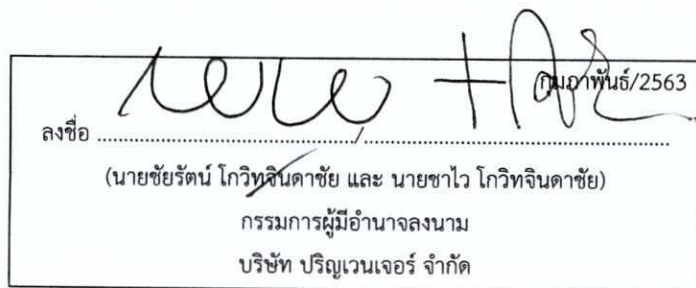 กุมภาพันธ์/2563
ลงชื่อ ......................................../................................................
(นายชัยรัตน์ โกวิทจินดาชัย และ นายชาไว โกวิทจินดาชัย)
กรรมการผู้มีอำนาจลงนาม
บริษัท ปริญเวนเจอร์ จำกัด